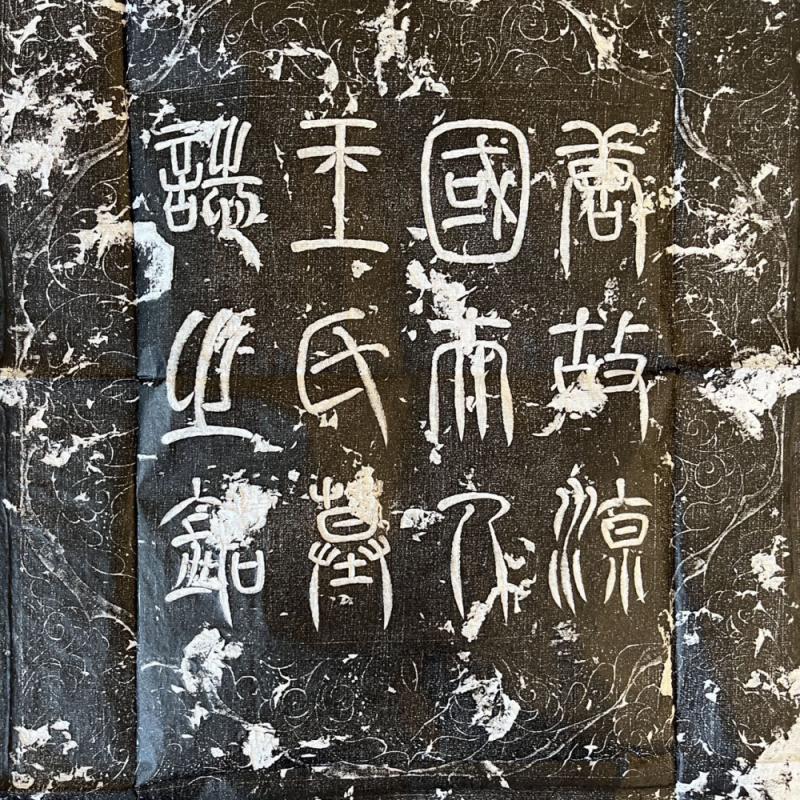 唐故涼
國夫人
王氏墓
誌之銘